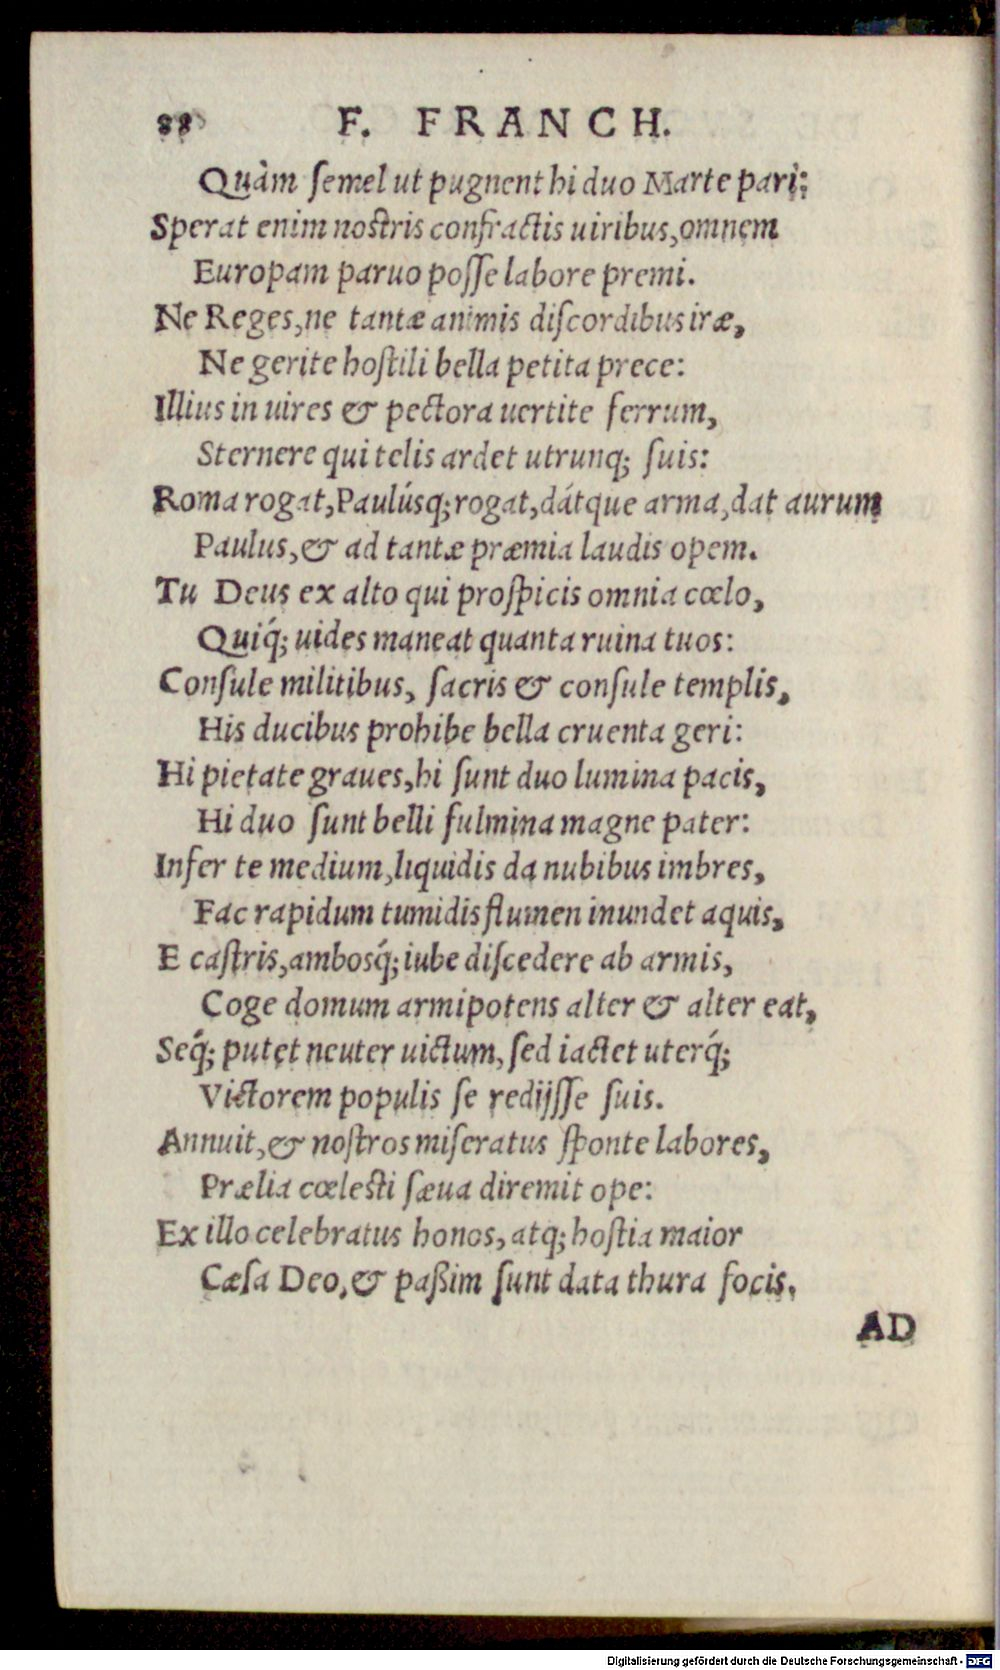 88 F. FRANCH.
Quàm ſemel ut pugnent hi duo Marte pari:
Sperat enim noſtris confractis uiribus, omnem
Europam paruo poſſe labore premi.
Ne Reges, ne tantæ animis diſcordibus iræ,
Ne gerite hoſtili bella petita prece:
Illius in uires & pectora uertite ferrum,
Sternere qui telis ardet utrunq; ſuis:
Roma rogat, Paulúsq; rogat, dátque arma, dat aurum
Paulus, & ad tantæ præmia laudis opem.
Tu Deus ex alto qui proſpicis omnia cœlo,
Quiq́; uides maneat quanta ruina tuos:
Conſule militibus, ſacris & conſule templis,
His ducibus prohibe bella cruenta geri:
Hi pietate graues, hi ſunt duo lumina pacis,
Hi duo ſunt belli fulmina magne pater:
Infer te medium, liquidis da nubibus imbres,
Fac rapidum tumidis flumen inundet aquis,
E caſtris, ambosq́; iube diſcedere ab armis,
Coge domum armipotens alter & alter eat,
Seq́; putet neuter uictum, ſed iactet uterq́;
Victorem populis ſe redijſſe ſuis.
Annuit, & noſtros miſeratus ſponte labores,
Prælia cœleſti ſæua diremit ope:
Ex illo celebratus honos, atq; hoſtia maior
Cæſa Deo, & paßim ſunt data thura focis.
AD
Digitalisierung gefördert durch die Deutsche Forschungsgemeinschaft - DFG